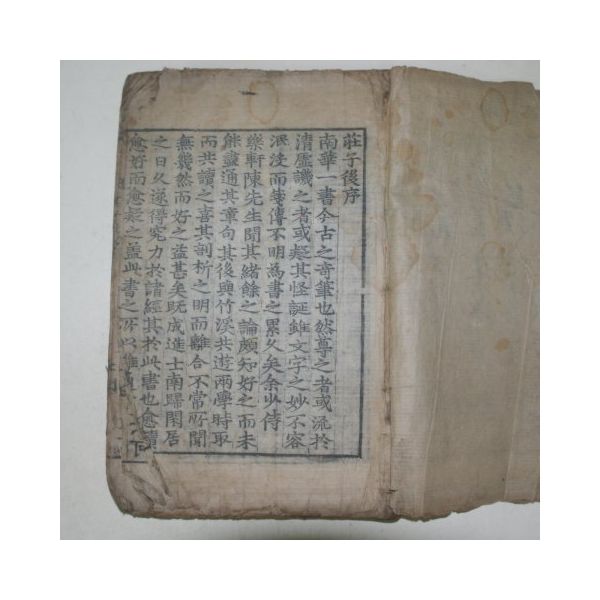 莊子後序
南華一書今古之奇筆也然尊之者或流於
清虛譏之者或疑其怪誕雖文字之妙不容
泯沒而箋傳不明為書之累久矣余少侍
樂軒陳先生聞其緒餘之論頗知好之而未
能盡通其章句其後與竹溪共遊兩學時取
而共讀之喜其剖析之明而離合不常所聞
無幾然而好之益甚矣既成進士南歸閑居
之日久遂得究力於諸經其於此書也愈讀
愈好而愈疑之蓋此書之所以難